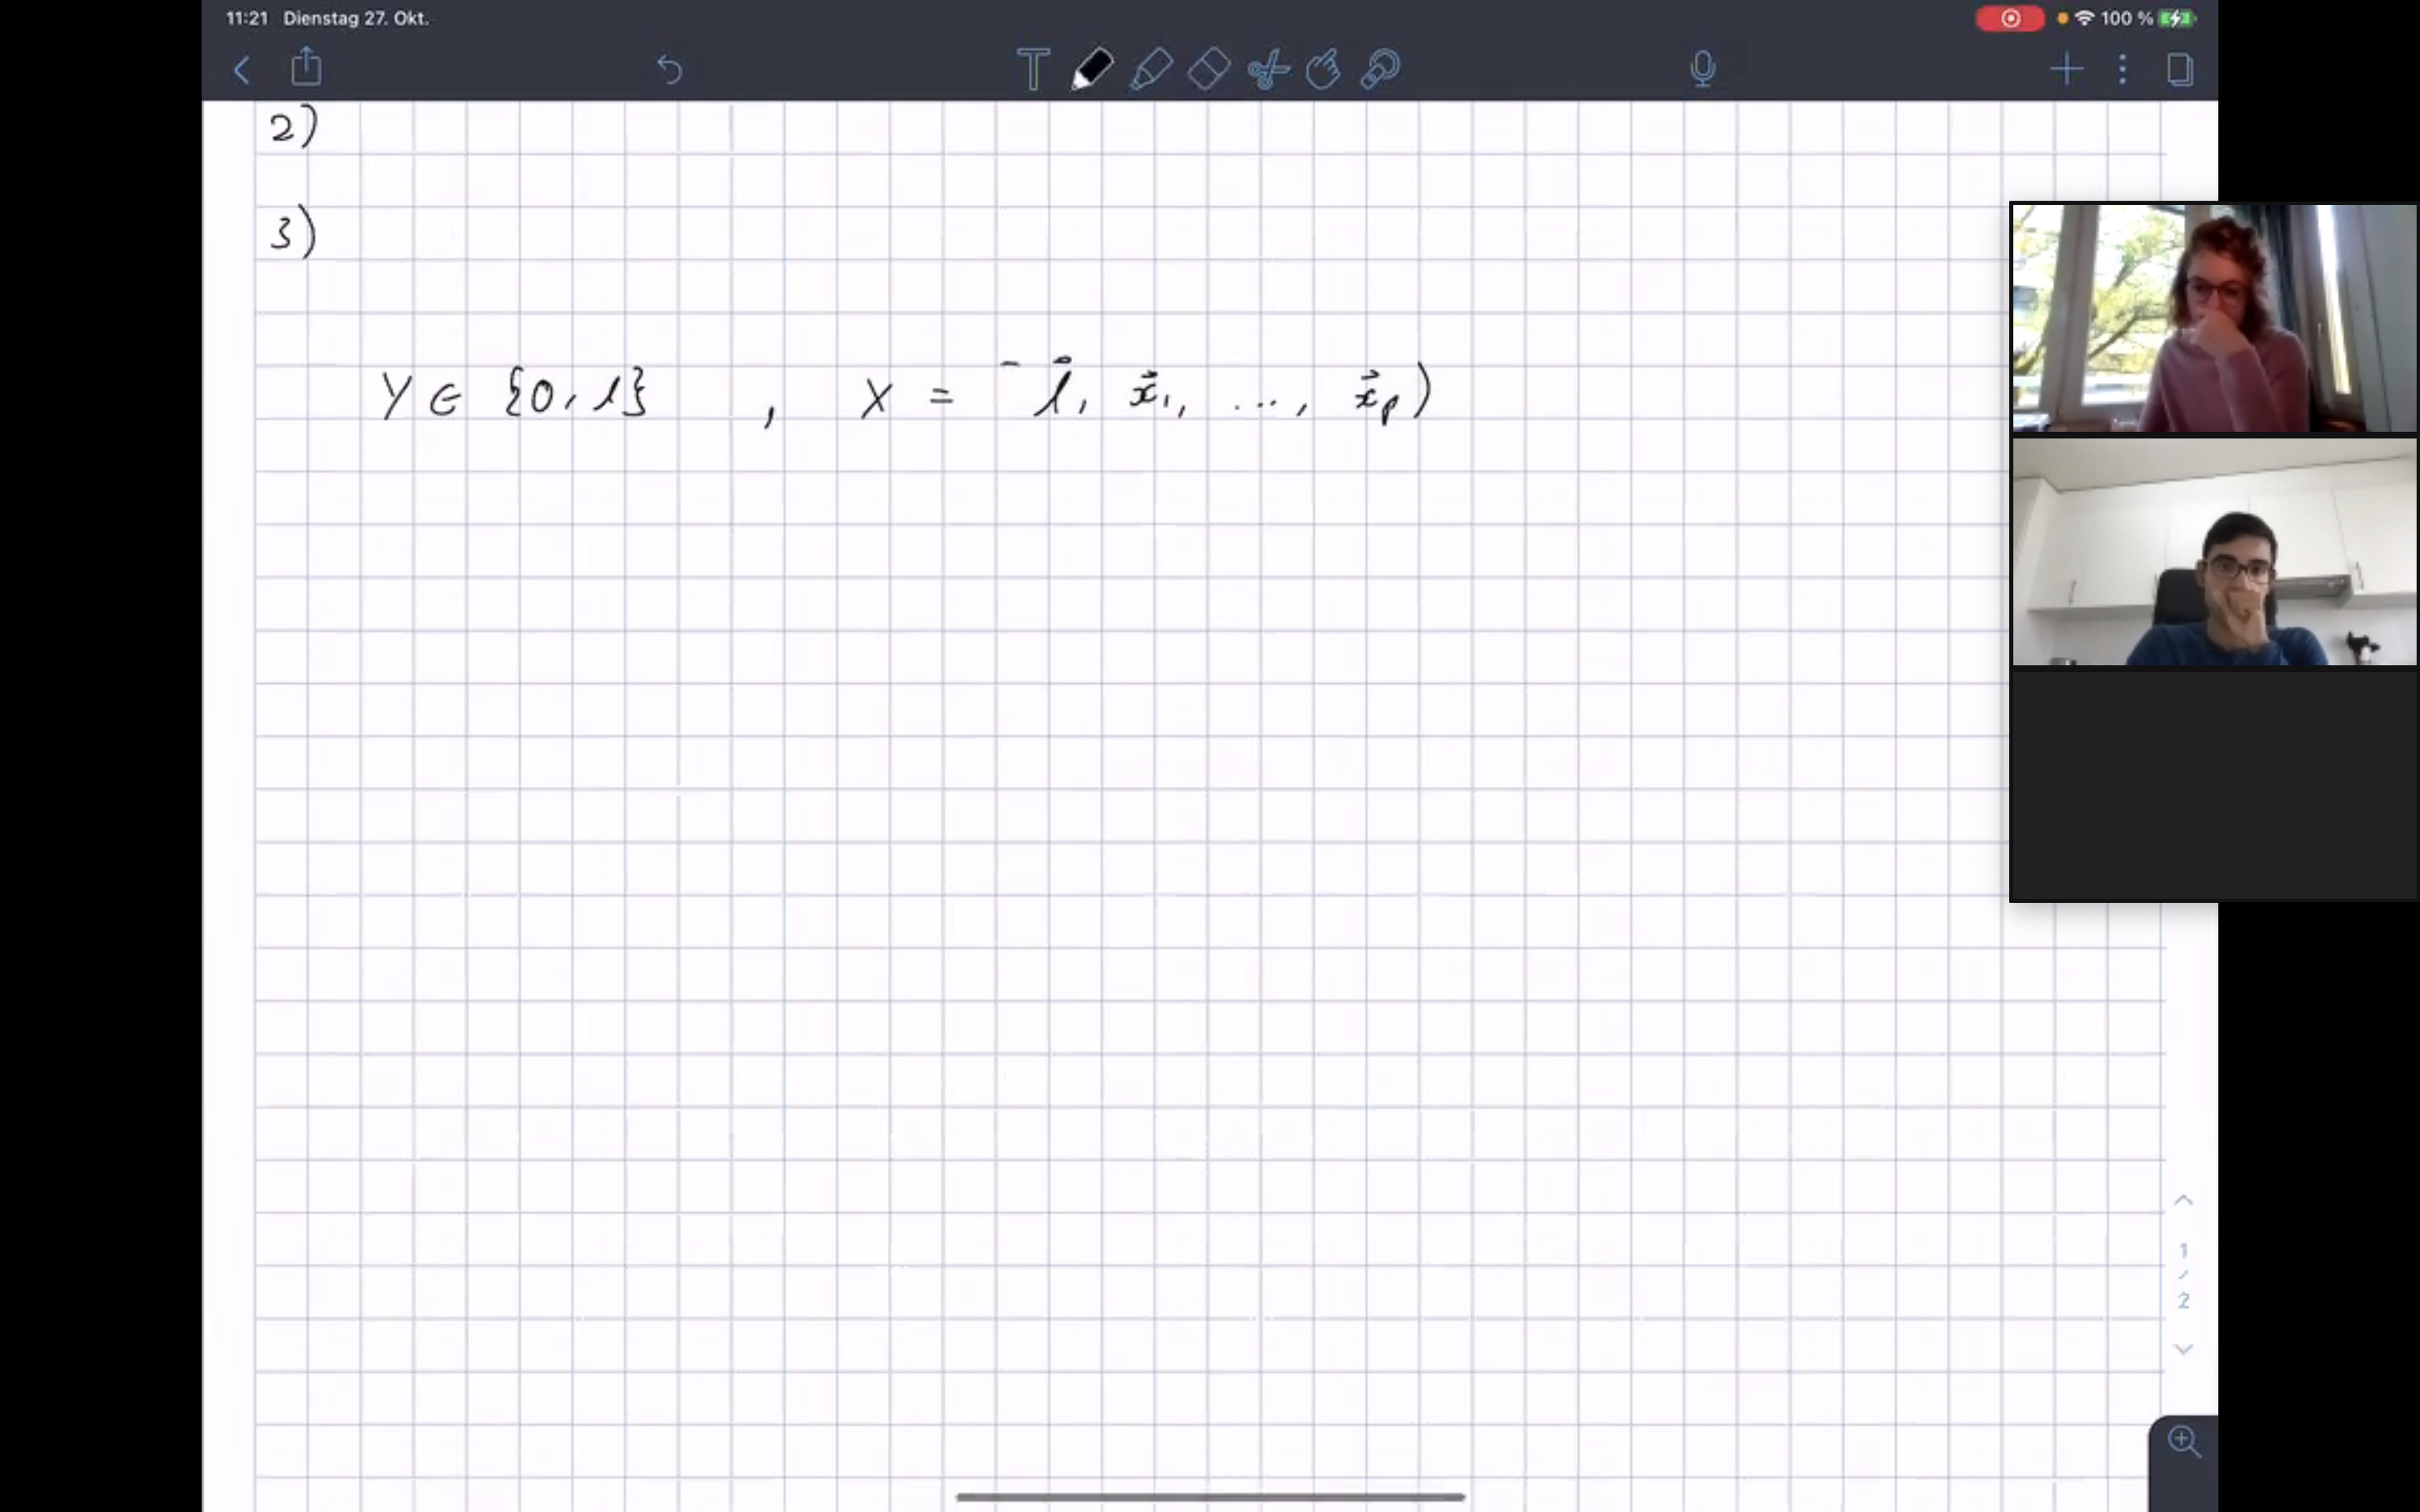 11:21 Dienstag 27. Okt.
100 %
T
2)
3)
Y ∈ {0, 1} , X = 1⃗, x⃗₁, ..., x⃗ₚ)
1
/
2